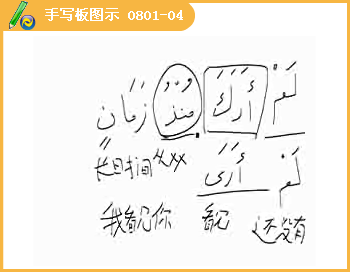 手写板图示 0801-04
لَمْ أَرَكَ مُنْذُ زَمَانٍ
长时间
لَمْ أَرَى
我看见你 看见 还没有